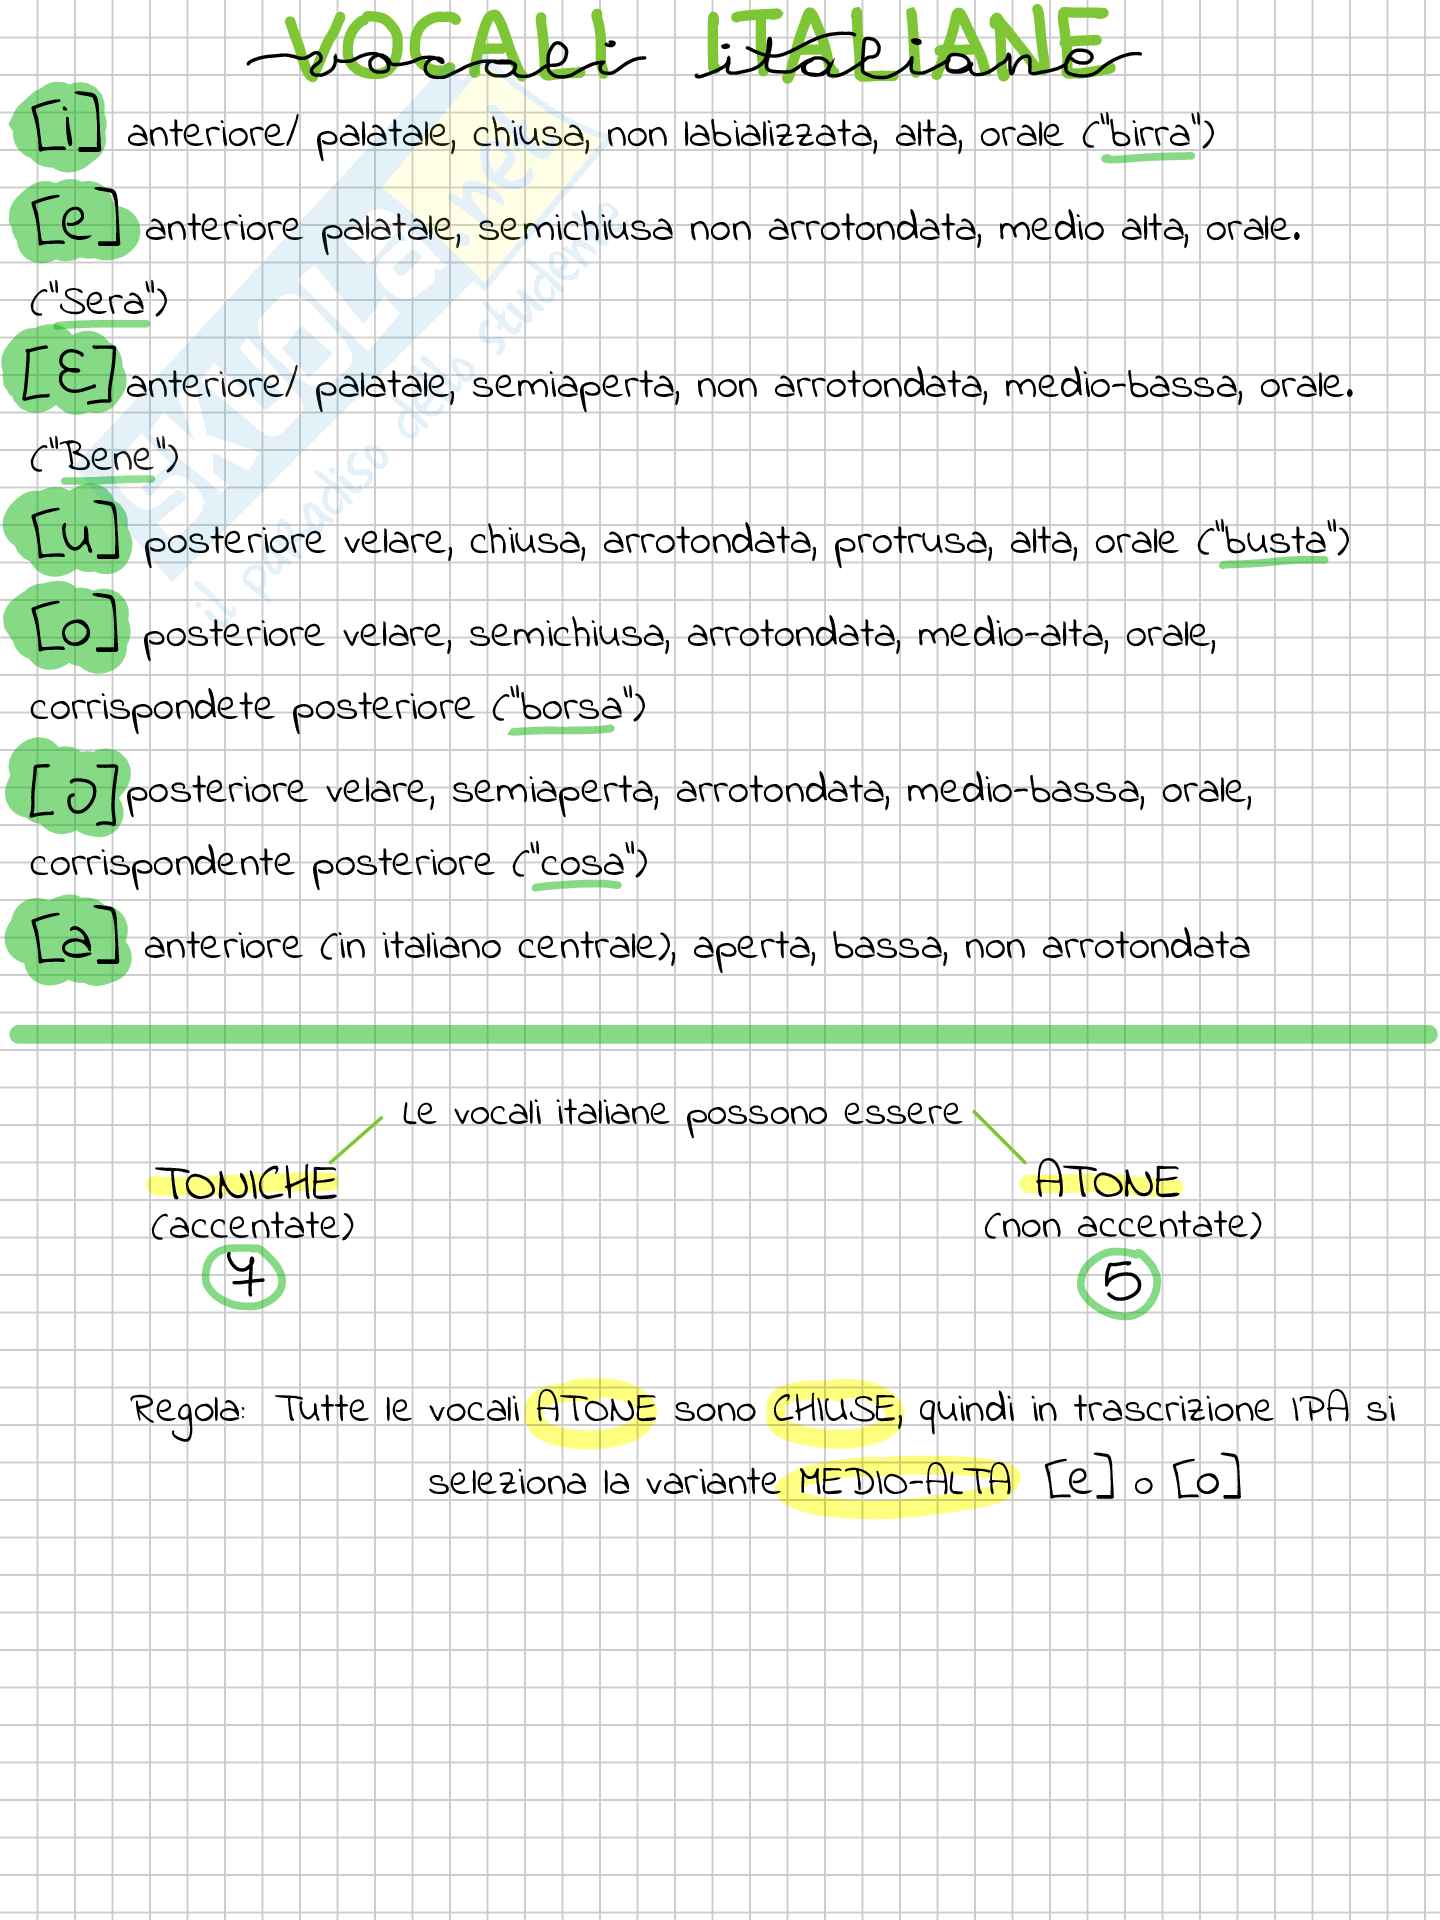 VOCALI ITALIANE
vocali italiane
[i] anteriore/ palatale, chiusa, non labializzata, alta, orale ("birra")
[e] anteriore palatale, semichiusa non arrotondata, medio alta, orale.
("Sera")
[Ɛ] anteriore/ palatale, semiaperta, non arrotondata, medio-bassa, orale.
("Bene")
[u] posteriore velare, chiusa, arrotondata, protrusa, alta, orale ("busta")
[o] posteriore velare, semichiusa, arrotondata, medio-alta, orale,
corrispondete posteriore ("borsa")
[ɔ] posteriore velare, semiaperta, arrotondata, medio-bassa, orale,
corrispondente posteriore ("cosa")
[a] anteriore (in italiano centrale), aperta, bassa, non arrotondata
SKUOLA.net
il paradiso dello studente
Le vocali italiane possono essere
TONICHE ATONE
(accentate) (non accentate)
7 5
Regola: Tutte le vocali ATONE sono CHIUSE, quindi in trascrizione IPA si
seleziona la variante MEDIO-ALTA [e] o [o]